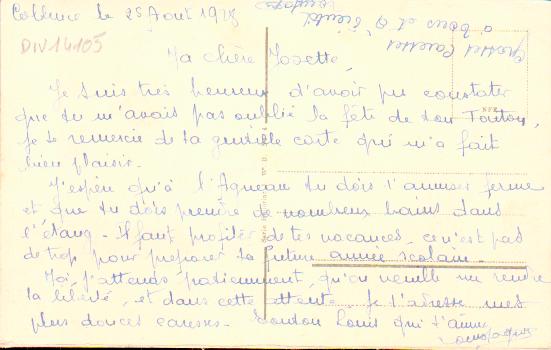 Coblence le 25 Août 1928
DIV14105
Ma chère Josette,
Je suis très heureux d'avoir pu constater
que tu m'avais pas oublié la fête de ton Tonton,
je te remercie de ta gentille carte qui m'a fait
bien plaisir.
J'espère qu'à l'Agneau tu dois t'amuser ferme
et que tu dois prendre de nombreux bains dans
l'étang - Il faut profiter de tes vacances, ce n'est pas
de trop pour préparer la future année scolaire.
Moi, j'attends patiemment, qu'on veuille me rendre
la liberté, et dans cette attente, je t'adresse mes
plus douces caresses. Tonton Louis qui t'aime
Grosses Caresses
à tous et à bientôt